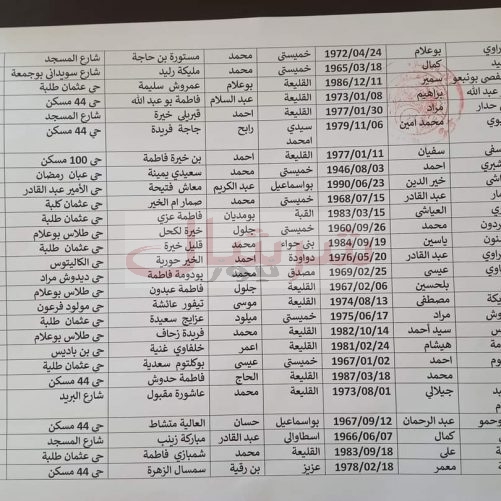 راوي بوعلام 1972/04/24 خميستي محمد مستورة بن حاجة شارع المسجد
يد كمال 1965/03/18 خميستي محمد مليكة رليد شارع سويداني بوجمعة
سمير 1986/12/11 القليعة بوعلام عمروش سليمة حي عثمان طلبة
عبد الله براهيم 1973/01/08 القليعة عبد السلام فاطمة بو عبد الله حي 44 مسكن
حدار مراد 1977/01/30 القليعة احمد قبريلي خيرة شارع المسجد
وي محمد امين 1979/11/06 سيدي امحمد رابح جاجة فريدة حي 44 مسكن
سفي سفيان 1977/01/11 القليعة احمد بن خيرة فاطمة حي 100 مسكن
شيري احمد 1946/08/03 خميستي محمد سعيدي يمينة حي عبان رمضان
اشي خير الدين 1990/06/23 بواسماعيل عبد الكريم معاش فتيحة حي الأمير عبد القادر
ار عبد القادر 1968/07/15 خميستي محمد صمار ام الخير حي عثمان كلبة
ري العياشي 1983/03/15 القبة بومديان فاطمة عزي حي عثمان طلبة
ردون محمد 1960/09/26 خميستي جلول خيرة لكحل حي طلاس بوعلام
نون ياسين 1984/09/19 بني حواء محمد قليل خيرة حي عثمان طلبة
راوي عبد القادر 1976/05/20 دواودة احمد الخير حورية حي الكاليتوس
اوي عيسى 1969/02/25 مصدق محمد بودومة فاطمة حي ديدوش مراد
بلحسين 1967/02/06 القليعة جلول فاطمة عبدون حي طلاس بوعلام
كة مصطفى 1974/08/13 القليعة موسى تيفور عائشة حي مولود فرعون
وش مراد 1975/06/17 خميستي ميلود عزايج سعيدة حي عثمان طلبة
س سيد أحمد 1982/10/14 القليعة محمد فريدة زحاف حي طلاس بوعلام
مة هيشام 1981/02/24 القليعة اعمر خلفاوي غنية حي بن باديس
وم احمد 1967/01/02 خميستي عيسى بوكلتوم سعدية حي عثمان طلبة
محمد 1987/03/18 القليعة الحاج فاطمة حدوش حي 44 مسكن
يد جيلالي 1973/08/01 القليعة محمد عاشورة مقبول شارع البريد
وحمو عبد الرحمان 1967/09/12 بواسماعيل حسان العالية متشاط حي 44 مسكن
ي كمال 1966/06/07 اسطاوالي عبد القادر مباركة زينب شارع المسجد
ة علي 1983/09/18 القليعة محمد شمبازي فاطمة حي عثمان طلبة
ة معمر 1978/02/18 عزيز بن رقية سمسال الزهرة حي 44 مسكن